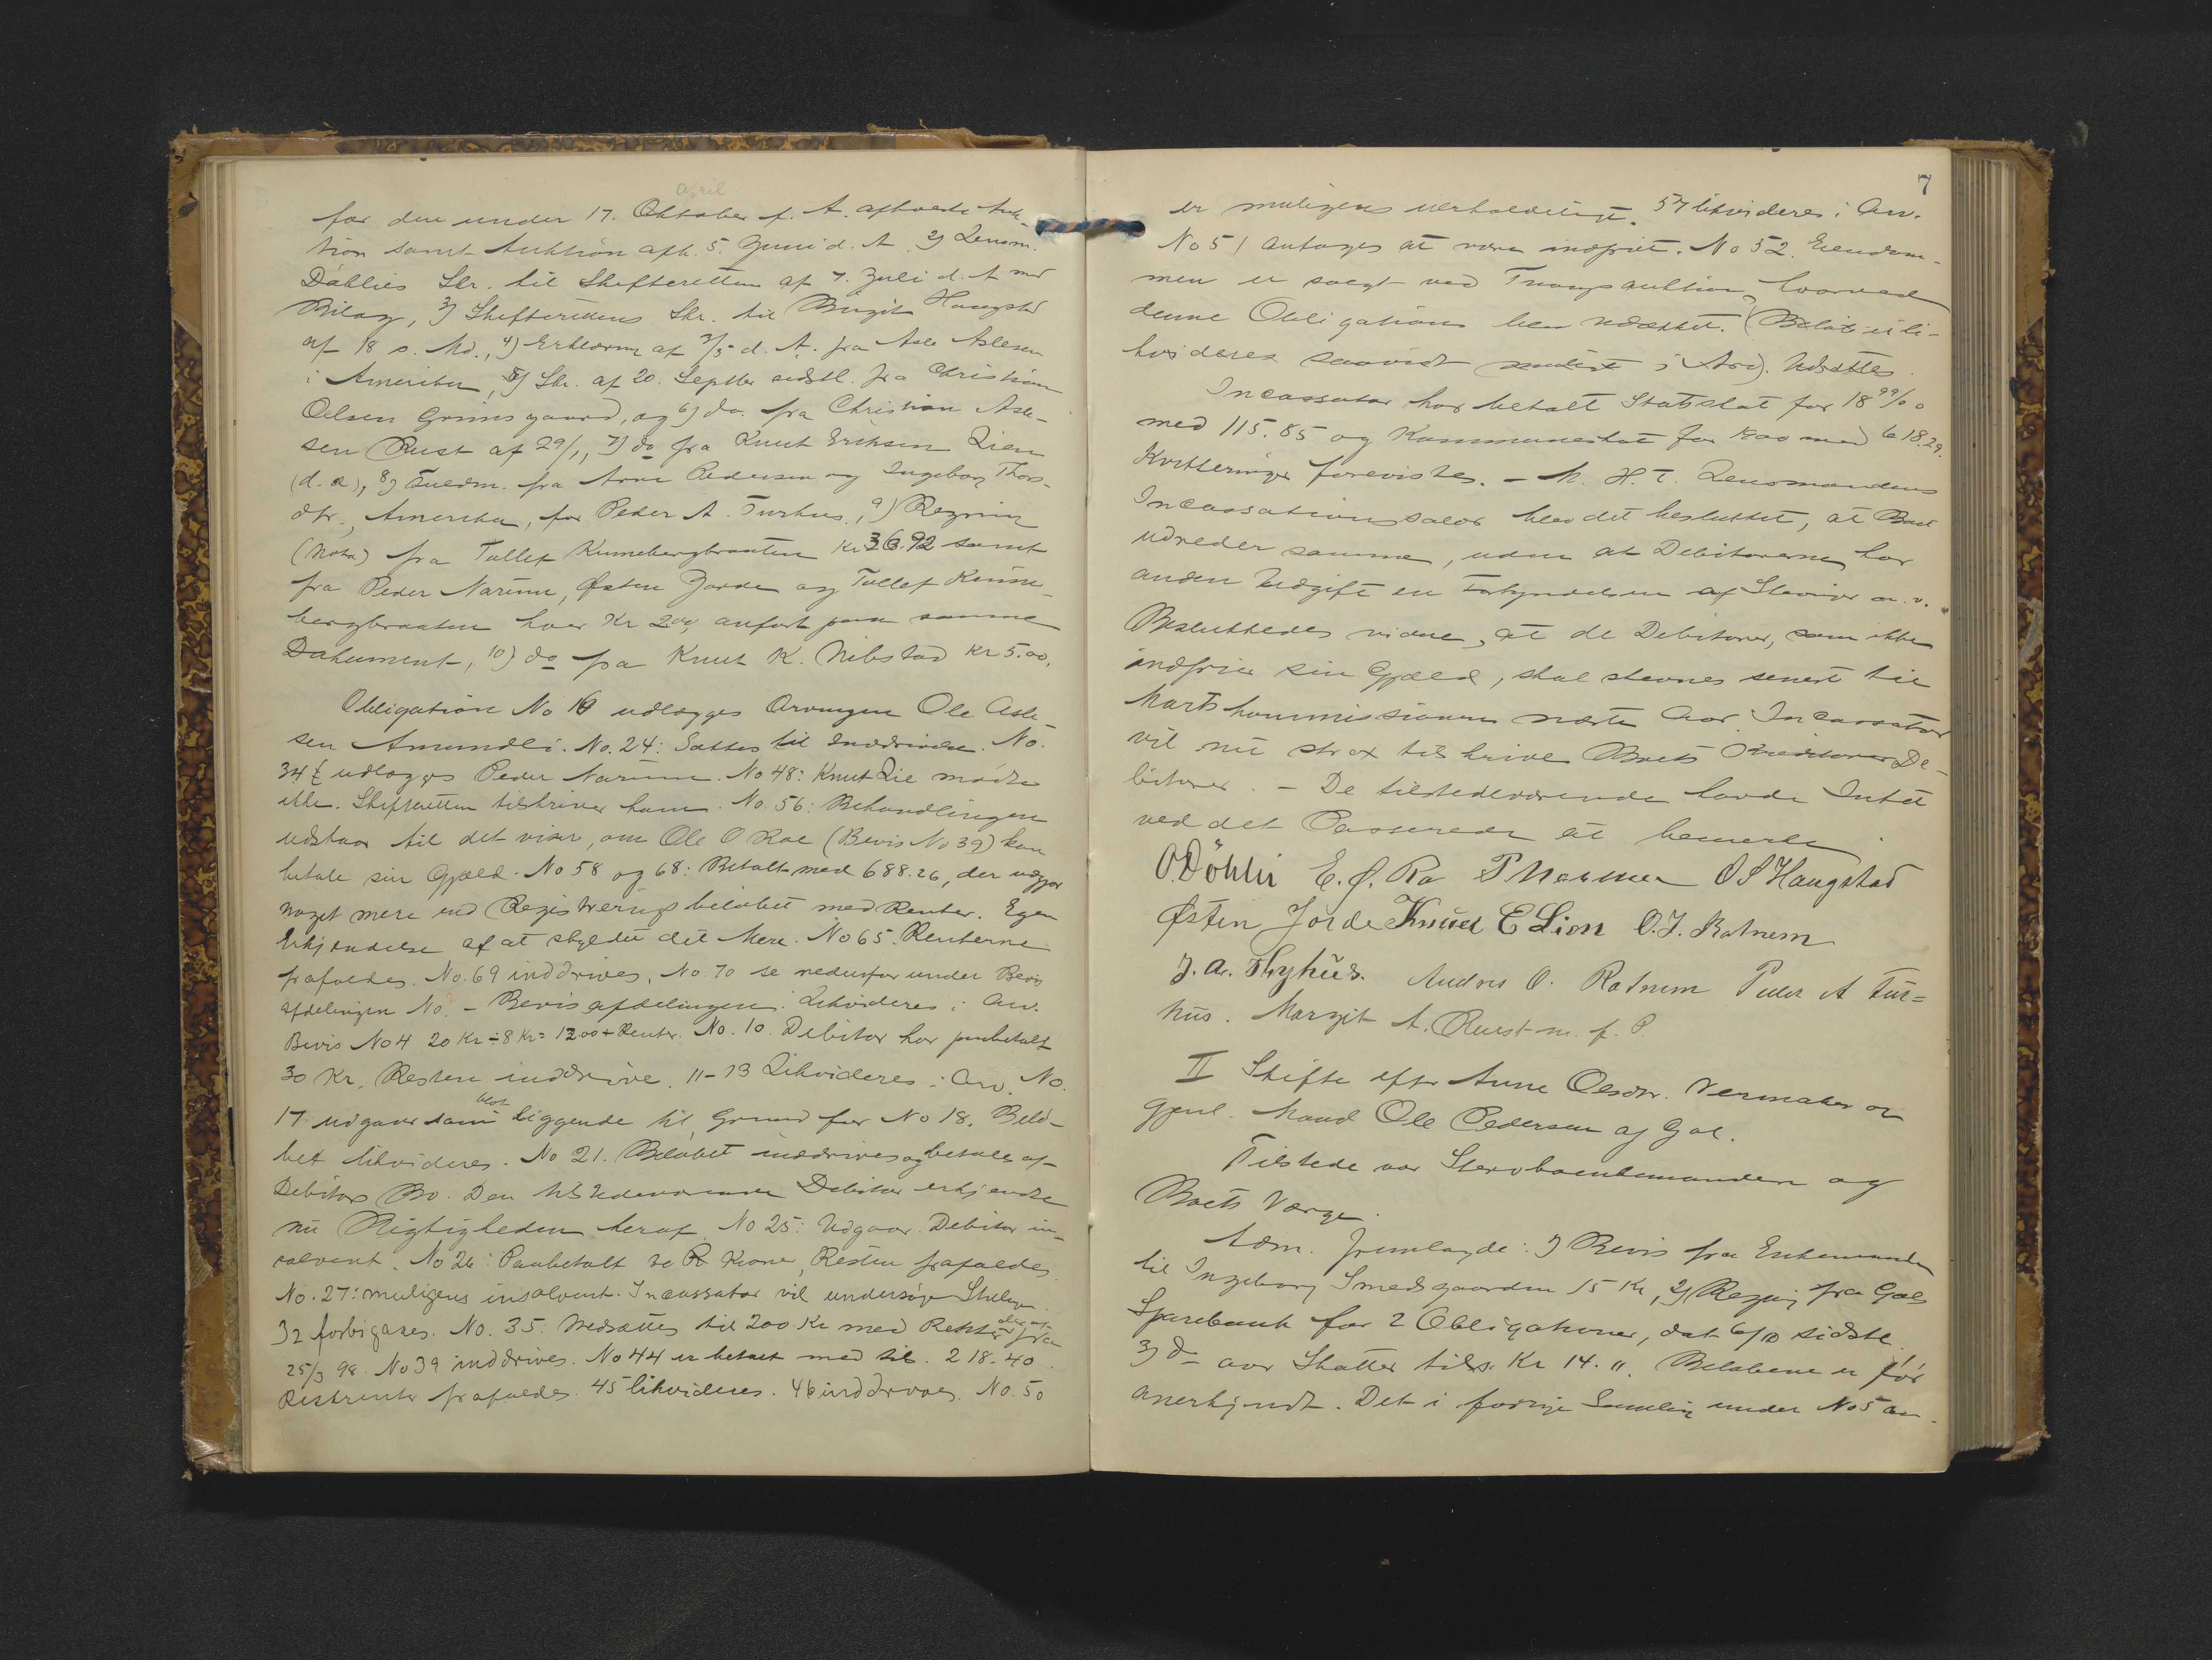 april
for den under 17. Oktober f. A. afholdte Auk-
tion samt Auktion afh. 5. Juni d. A. 2) Lensm.
Döhlies Skr. til Skifteretten af 7. Juli d. A. med
Bilag, 3) Skifterettens Skr. til Birgit Haugstad
af 18 s. Md., 4) Erklæring af 3/5 d. A. fra Asle Aslesen
i Amerika, 5) Skr. af 20. Septbr sidstl. fra Christian
Oelsen Grimsgaard, og 6) do. fra Christian Asle-
sen Rust af 29/1, 7) do fra Knut Eriksen Lien
(d. æ), 8) Fuldm. fra Arne Pedersen og Ingeborg Thors-
dtr., Amerika, for Peder A. Turhus, 9) Regning
(Nota) fra Tollef Kinnebergbraaten Kr 36.92 samt
fra Peder Narum, Østen Jorde og Tollef Kinne-
bergbraaten hver Kr 2.00, anført paa samme
Dokument, 10) do fra Knut K. Nibstad Kr 5.00.
Obligation No 16 udlægges Arvingen Ole Asle-
sen Amundli. No. 24: Sættes til Inddrivelse. No.
34 udlægges Peder Narum. No 48: Knut Lie mødte
ikke. Skifteretten tilskriver ham. No. 56: Behandlingen
udstaar til det viser, om Ole O Roe (Bevis No 39) kan
betale sin Gjæld. No 58 og 68: Betalt med 688.26, der udgjør
noget mere end Registreringsbeløbet med Renter. Egen
Erkjendelse af at skylde det Mere. No 65. Renterne
frafaldes. No. 69 inddrives. No. 70 se nedenfor under Bevis
afdelingen No. ? - Bevisafdelingen: Likvideres i Arv.
Bevis No 4 20 Kr ÷ 8 Kr = 12.00 + Renter. No. 10. Debitor har paabetalt
30 Kr, Resten inddrive. 11-13 Likvideres i Arv. No.
17 udgaar som blot liggende til Grund for No 18. Belø-
bet likvideres. No 21. Beløbet inddrives og betales af
Debitors Bo. Den tilstedeværende Debitor erkjendte
nu Rigtigheden heraf. No 25: Udgaar. Debitor in-
solvent. No 26: Paabetalt Kroner, Resten frafaldes
No. 27: muligens insolvent. Incassator vil undersøge Stillingen.
32 forbigaaes. No. 35: Nedsættes til 200 Kr med Renter fra
25/3 98. No 39 inddrives. No 44 er betalt med tils. 218.40.
Restrenter frafaldes. 45 likvideres. 46 inddrives. No. 50
7
er muligens uerholdeligt. 57 likvideres i Arv.
No 51 antages at være indfriet. No 52. Eiendom-
men er solgt ved Tvangsauktion, hvorved
denne Obligation blev udækket. (Beløbet li-
kvideres saavidt muligt i Arv). Udsættes.
Incassator har betalt Statsskat for 1899/00
med 115.85 og Kommuneskat for 1900 med 618.29.
Kvitteringer forevistes. - M. H. T. Lensmandens
Incassationssalær blev det besluttet, at Boet
udreder samme, uden at Debitorerne har
anden Udgift en Forkyndelsen af Stevninger o. v.
Besluttedes videre, at de Debitorer, som ikke
indfrier sin Gjæld, skal stevnes senest til
Martskommissionen næste Aar. Incassator
vil nu strax tilskrive Boets Kreditorer De-
bitorer. - De tilstedeværende havde Intet
ved det Passerede at bemerke.
O. Döhli E. Ø. Ro P Narum O S Haugstad
Østen Jorde Knud E Lien O. J. Rotnem
J. A. Thyhus. Andres O. Rotnem Peder A Tur=
hus. Margit A. Rust m. f. P.
II Skifte efter Anne Olsdtr. Vermaker og
gjenl. Mand Ole Pedersen af Gol.
Tilstede var Stervboenkemanden og
Boets Værge.
Adm. fremlagde: 1) Bevis fra Enkemanden
til Ingeborg Smedsgaarden 15 Kr, 2) Regning fra Gols
Sparebank for 2 Obligationer, dat. 6/10 sidstl.
3) do over Skatter tils. Kr 14. ". Beløbene er før
anerkjendt. Det i forrige Samling under No 5 an-